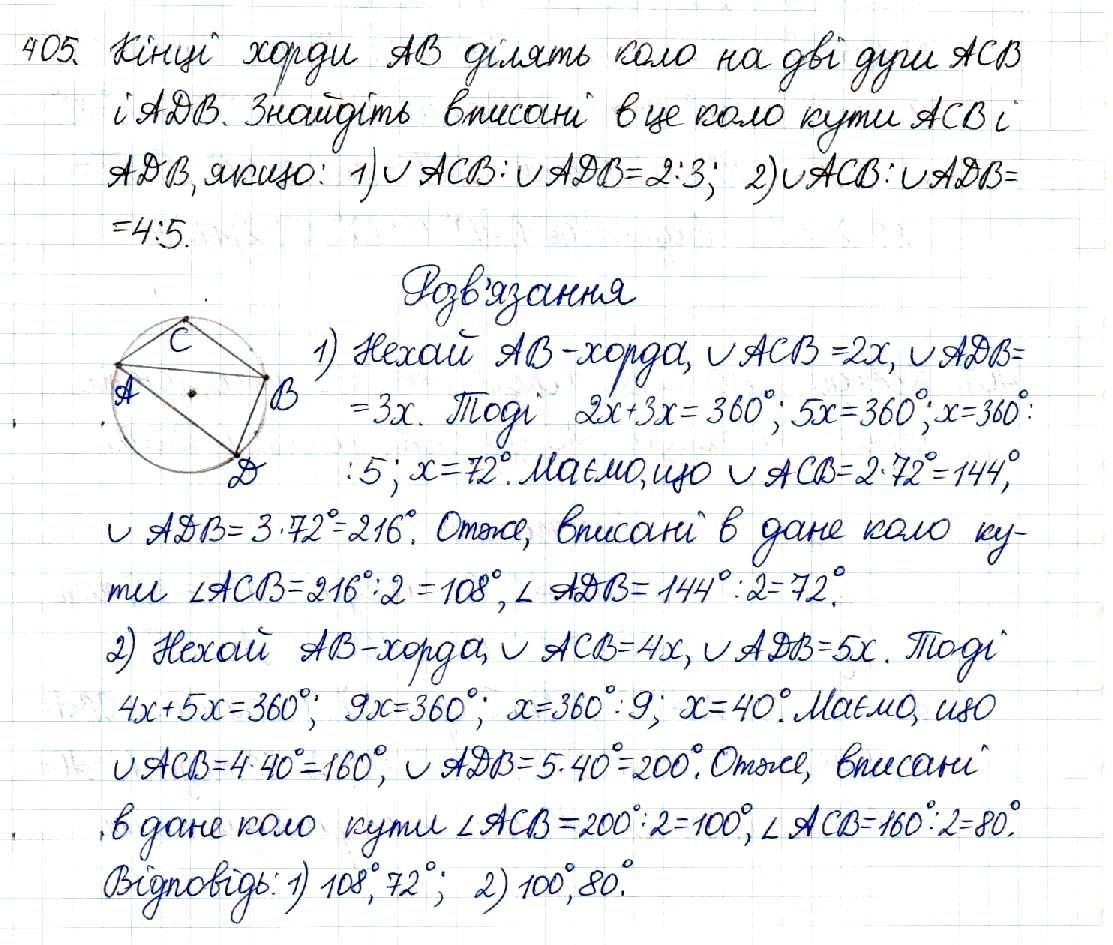 405. Кінці хорди AB ділять коло на дві дуги ACB
і ADB. Знайдіть вписані в це коло кути ACB і
ADB, якщо: 1) ∪ ACB : ∪ ADB = 2:3; 2) ∪ ACB : ∪ ADB =
= 4:5.
Розв'язання
C
A
B
D
1) Нехай AB – хорда, ∪ ACB = 2x, ∪ ADB =
= 3x. Тоді 2x + 3x = 360°; 5x = 360°; x = 360° :
: 5; x = 72°. Маємо, що ∪ ACB = 2·72° = 144°,
∪ ADB = 3·72° = 216°. Отже, вписані в дане коло ку-
ти ∠ACB = 216° : 2 = 108°, ∠ ADB = 144° : 2 = 72°.
2) Нехай AB – хорда, ∪ ACB = 4x, ∪ ADB = 5x. Тоді
4x + 5x = 360°; 9x = 360°; x = 360° : 9; x = 40°. Маємо, що
∪ ACB = 4·40° = 160°, ∪ ADB = 5·40° = 200°. Отже, вписані
в дане коло кути ∠ACB = 200° : 2 = 100°, ∠ ACB = 160° : 2 = 80°.
Відповідь: 1) 108°, 72°; 2) 100°, 80°.